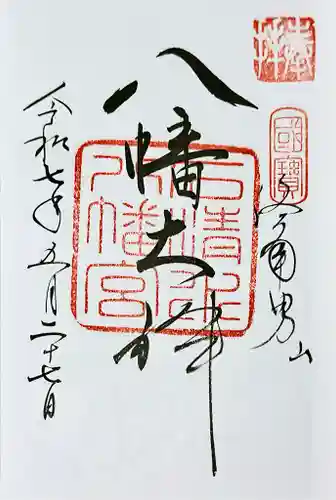 奉拝
國寶
男山
八幡大神
石清水八幡宮
令和七年五月二十七日